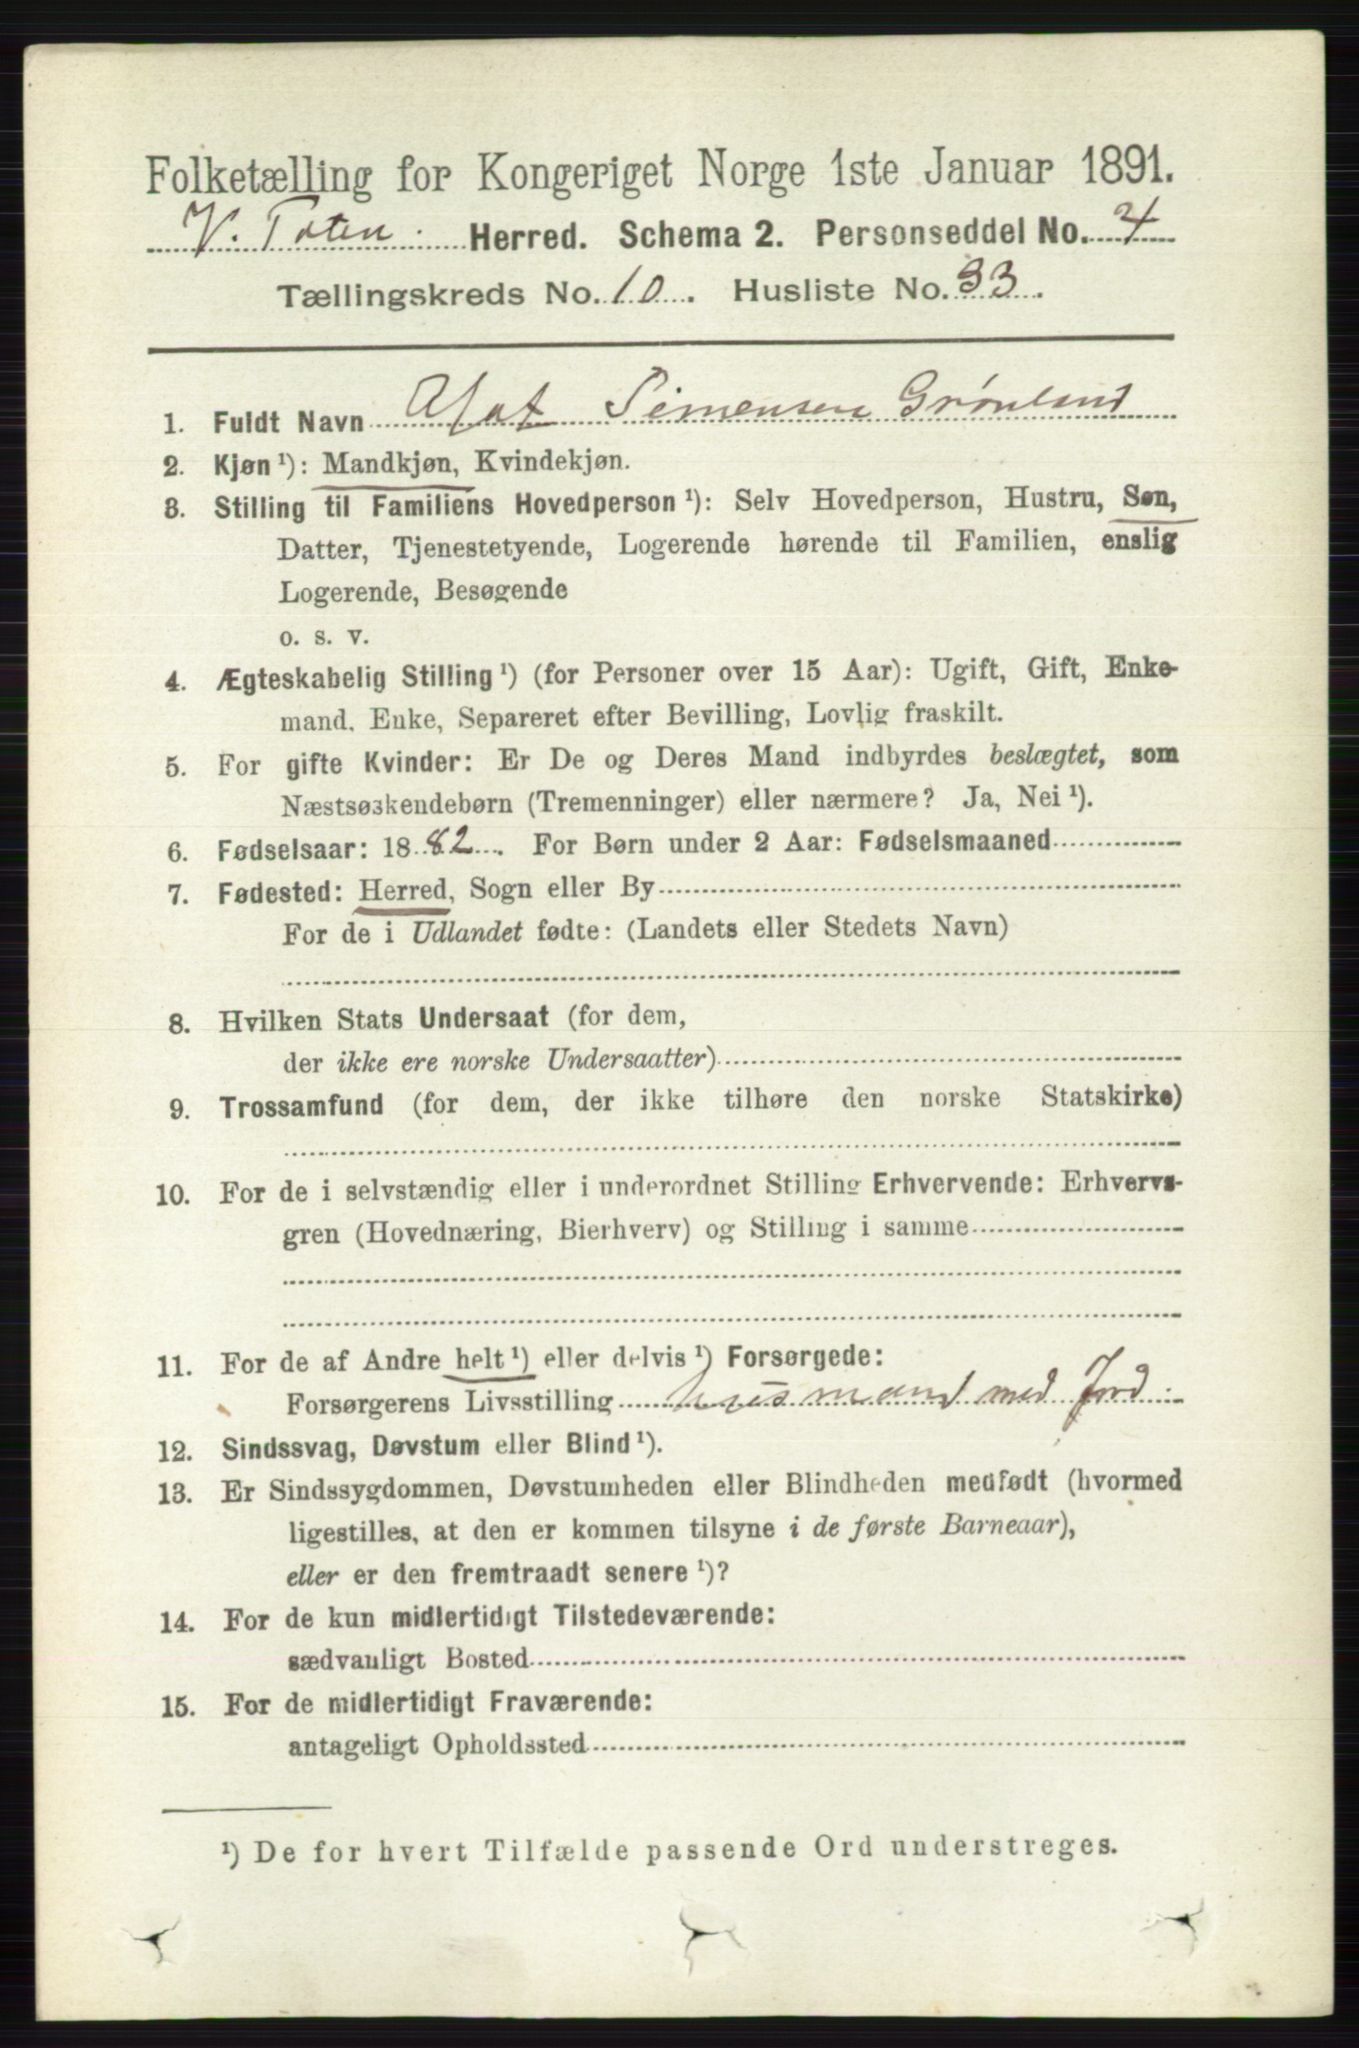 Folketælling for Kongeriget Norge 1ste Januar 1891.
V. Toten. Herred. Schema 2. Personseddel No. 4
Tællingskreds No. 10. Husliste No. 33.
1. Fuldt Navn Olat Simensen Grönland
2. Kjøn ¹): Mandkjøn, Kvindekjøn.
3. Stilling til Familiens Hovedperson ¹): Selv Hovedperson, Hustru, Søn,
Datter, Tjenestetyende, Logerende hørende til Familien, enslig
Logerende, Besøgende
o. s. v.
4. Ægteskabelig Stilling ¹) (for Personer over 15 Aar): Ugift, Gift, Enke-
mand, Enke, Separeret efter Bevilling, Lovlig fraskilt.
5. For gifte Kvinder: Er De og Deres Mand indbyrdes beslægtet, som
Næstsøskendebørn (Tremenninger) eller nærmere? Ja, Nei ¹).
6. Fødselsaar: 1882. For Børn under 2 Aar: Fødselsmaaned
7. Fødested: Herred, Sogn eller By
For de i Udlandet fødte: (Landets eller Stedets Navn)
8. Hvilken Stats Undersaat (for dem,
der ikke ere norske Undersaatter)
9. Trossamfund (for dem, der ikke tilhøre den norske Statskirke)
10. For de i selvstændig eller i underordnet Stilling Erhvervende: Erhvervs-
gren (Hovednæring, Bierhverv) og Stilling i samme
11. For de af Andre helt ¹) eller delvis ¹) Forsørgede:
Forsørgerens Livsstilling husmand med Jord.
12. Sindssvag, Døvstum eller Blind ¹).
13. Er Sindssygdommen, Døvstumheden eller Blindheden medfødt (hvormed
ligestilles, at den er kommen tilsyne i de første Barneaar),
eller er den fremtraadt senere ¹)?
14. For de kun midlertidigt Tilstedeværende:
sædvanligt Bosted
15. For de midlertidigt Fraværende:
antageligt Opholdssted
¹) De for hvert Tilfælde passende Ord understreges.